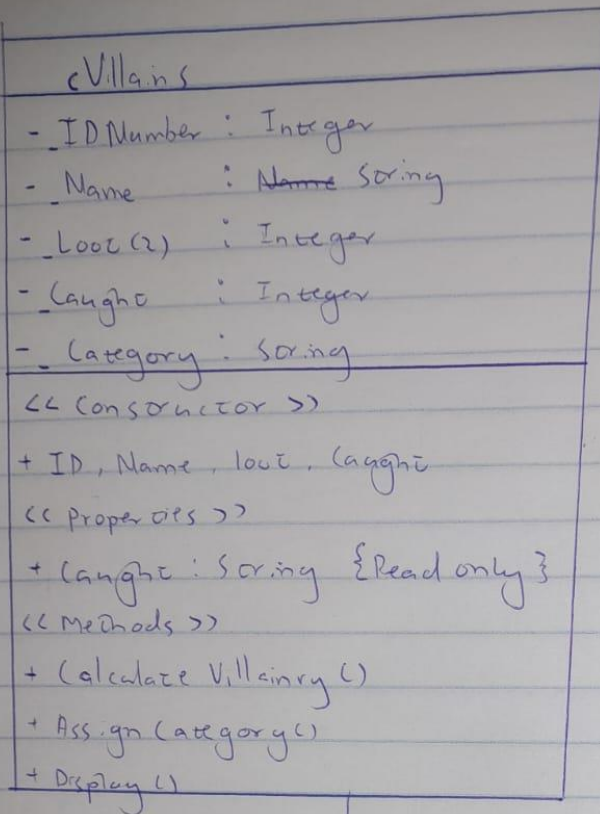 cVillains
- _IDNumber : Integer
- _Name : Name String
- _Loot(2) : Integer
- _Caught : Integer
- _Category : String
<< Constructor >>
+ ID, Name, loot, Caught
<< Properties >>
+ Caught : String {Read only}
<< Methods >>
+ Calculate Villainry ()
+ Assign Category()
+ Display ()